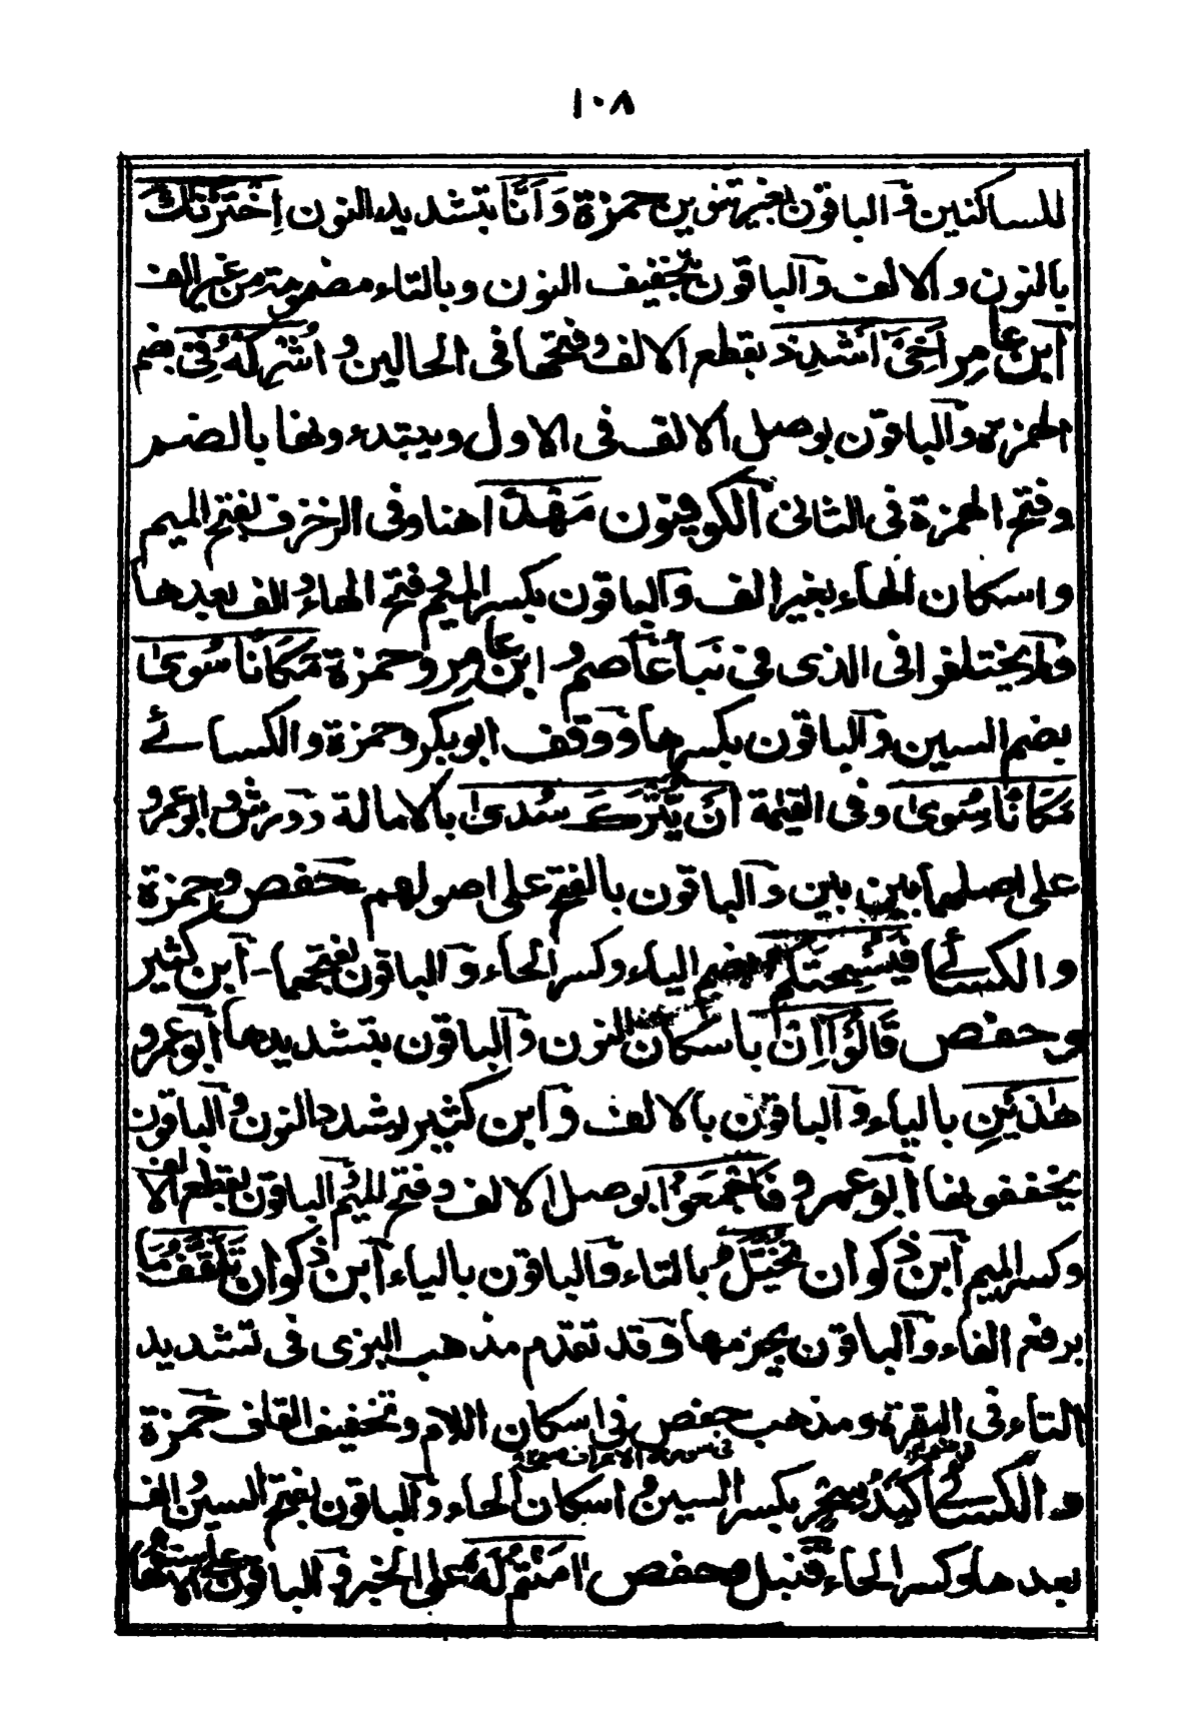 ١٠٨
للساكنين والباقون بغير تنوين حمزة وَأَنَّا بتشديد النون اِخْتَرْنٰكَ
بالنون والالف والباقون بتخفيف النون وبالتاء مضمومة من غير الف
ابن عامر اَخِىْ اَشْدِدْ بقطع الالف وفتحها فى الحالين و اُشْرِكْهُ فِىْ بضم
الهمزة والباقون بوصل الالف فى الاول ويبتدءونها بالضم
وفتح الهمزة فى الثانى الكوفيون مَهْدًا هنا وفى الزخرف بفتح الميم
واسكان الهاء بغير الف والباقون بكسر الميم وفتح الهاء والف بعدها
ولم يختلفوا فى الذى فى نبأ عاصم و ابن عامر وحمزة مَكَانًا سُوىً
بضم السين والباقون بكسرها ووقف ابو بكر وحمزة والكسائے
مَكَانًا سُوىً وفى القيٰمة اَنْ يُّتْرَكَ سُدىً بالامالة وورش وابو عمرو
على اصلهما بين بين والباقون بالفتح على اصولهم حفص وحمزة
والكسائے فَيُسْحِتَكُمْ بضم الياء وكسر الحاء والباقون بفتحهما ابن كثير
وحفص قَالُوْا اِنْ باسكان النون والباقون بتشديدها ابو عمرو
هٰذَيْنِ بالياء والباقون بالالف وابن كثير يشدد النون والباقون
يخففونها ابو عمرو فَاجْمَعُوْا بوصل الالف وفتح الميم والباقون بقطع الالف
وكسر الميم ابن ذكوان تُخَيَّلُ بالتاء والباقون بالياء ابن ذكوان تَلَقَّفُ مَا
برفع الفاء والباقون بجزمها وقد تقدم مذهب البزى فى تشديد
التاء فى البقرة ومذهب حفص فى اسكان اللام وتخفيف القاف حمزة
فى سورة الاعراف
والكسائے كَيْدُ سِحْرٍ بكسر السين و اسكان الحاء والباقون بفتح السين والف
بعدها وكسر الحاء قنبل وحفص اٰمَنْتُمْ لَهٗ على الخبر والباقون على الاستفهام